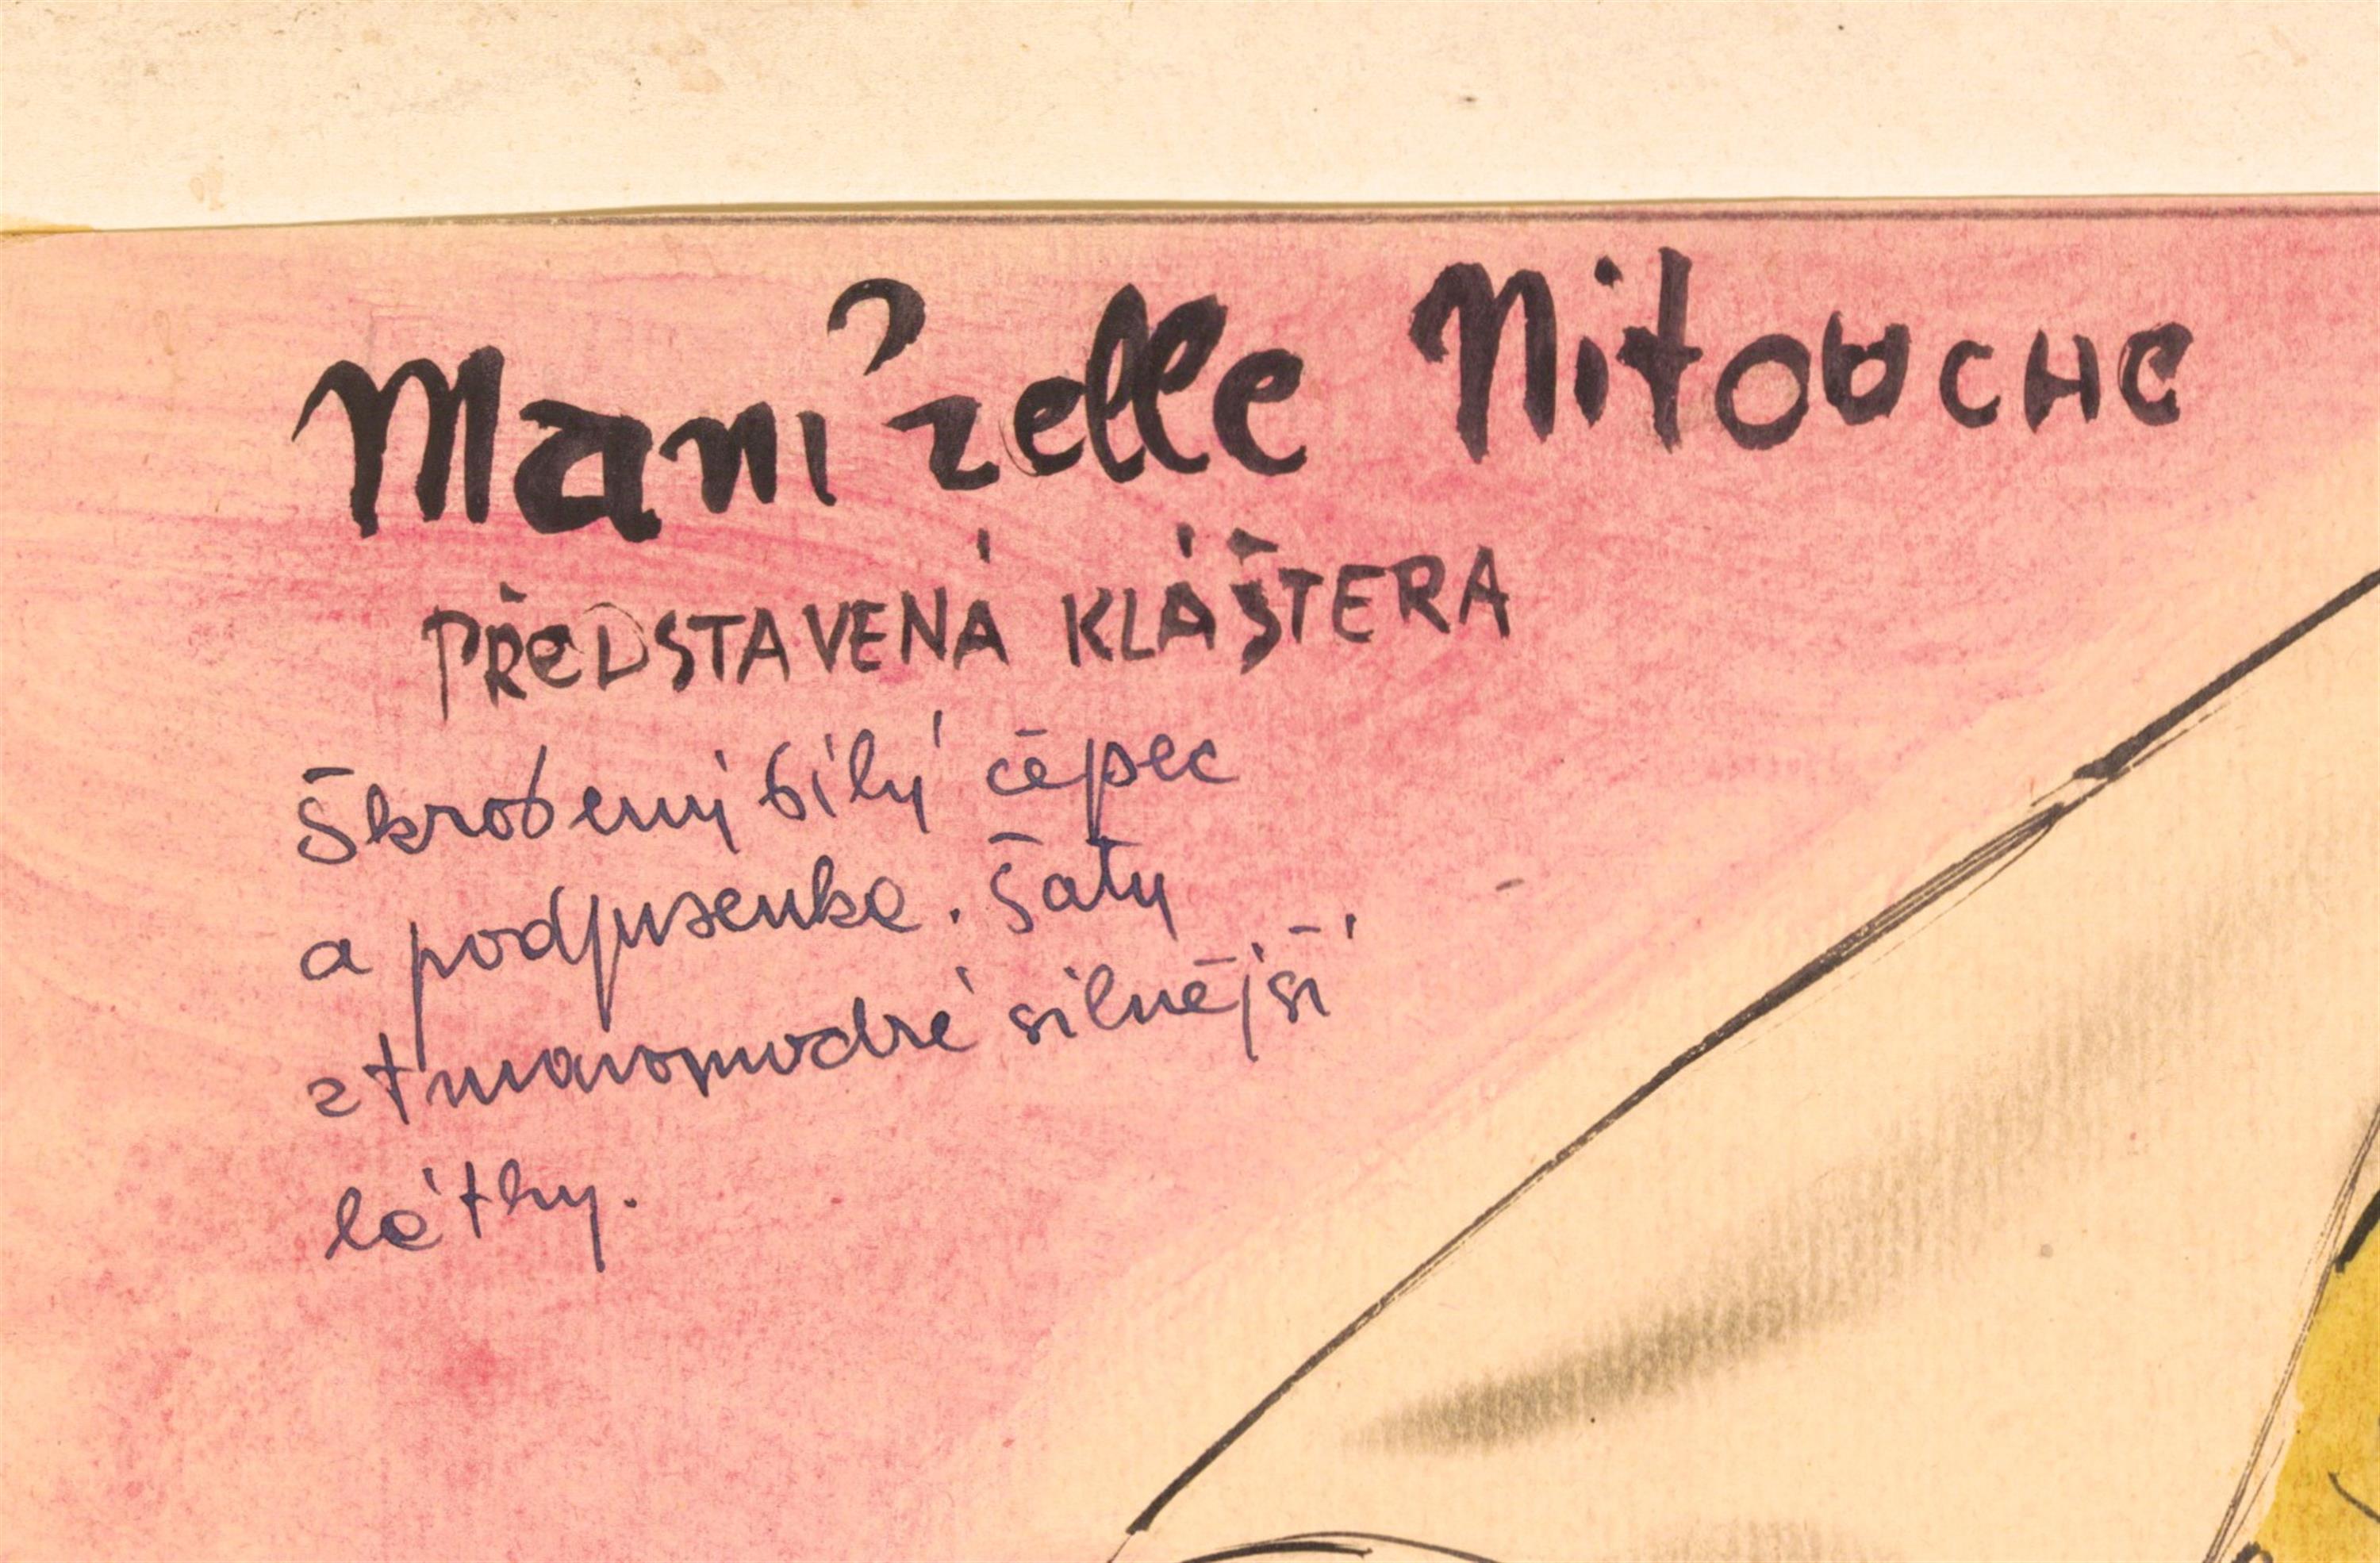 Mam'zelle Nitouche
PŘEDSTAVENÁ KLÁŠTERA
Škrobený bílý čepec
a podpusenka. Šaty
z tmavomodré silnější
látky.